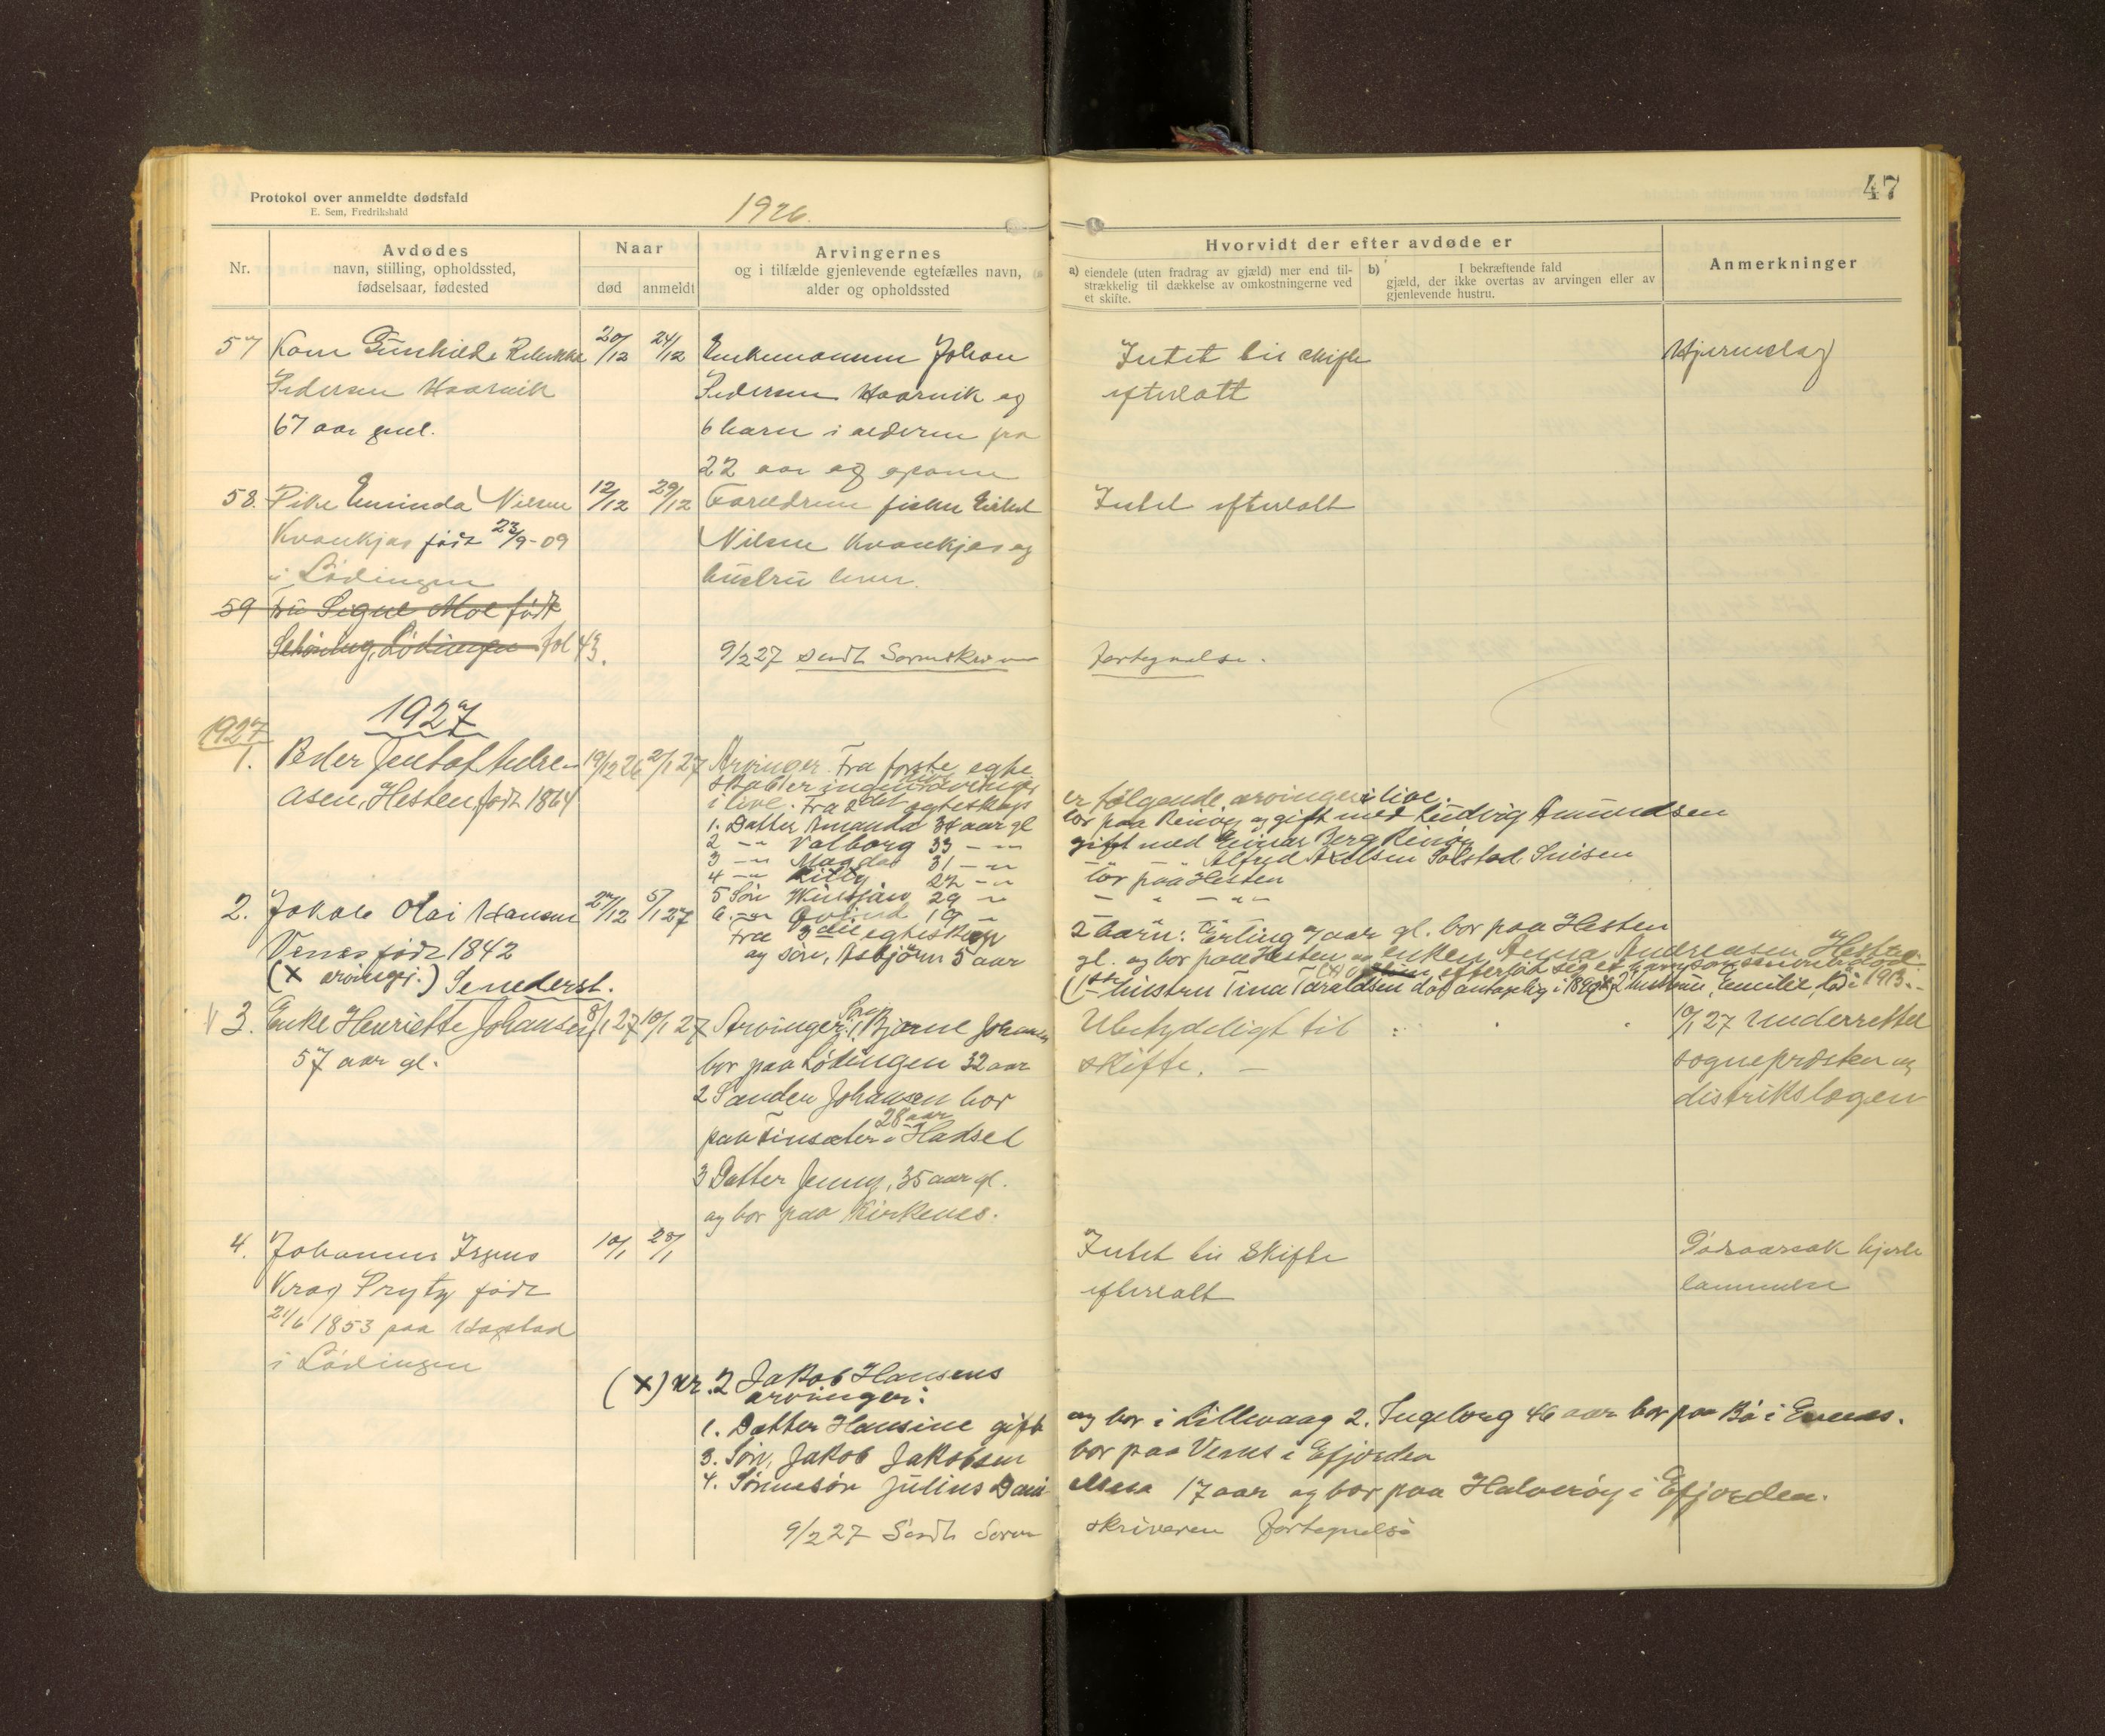 Protokol over anmeldte dødsfald
E. Sem, Fredrikshald
1926.
47
Nr.
Avdødes
navn, stilling, opholdssted,
fødselsaar, fødested
Naar
død
anmeldt
Arvingernes
og i tilfælde gjenlevende egtefælles navn,
alder og opholdssted
Hvorvidt der efter avdøde er
a) eiendele (uten fradrag av gjæld) mer end til-
strækkelig til dækkelse av omkostningerne ved
et skifte.
b) I bekræftende fald
gjæld, der ikke overtas av arvingen eller av
gjenlevende hustru.
Anmerkninger
57 Kone Gunhilde 20/12 24/12 Enkemannen Johan Intet til skifte Hjerneslag
Pedersen Haarvik Pedersen Haarvik og efterlatt
67 aar gml. 6 barn i alderen fra
22 aar og opover
58. Pike Eminda Nilsen 12/12 29/12 Forældrene fisker Nils Intet efterlatt
Kvankjos født 23/9-09 Nilsen Kvankjos og
i Lødingen hustru lever.
59 Fru Signe Moe født
Schøning, Lødingen fol 43. 9/2 27 Sendt Sorenskriveren fortegnelse.
1927
1927
1. Peder Jentof Andre- 19/12 26 2/1 27 Arvinger. Fra første egte
asen, Hesten, født 1864 skab er ingen arvinger
i live. Fra 2det egteskap er følgende arvinger i live.
1. Datter Amanda 34 aar gl bor paa Rinøy og gift med Ludvig Amundsen
2 -"- Valborg 33 -"- gift med Einar Berg Rinøy
3 -"- Magda 31 -"- -"- -"- Alfred Axelsen Solstad
4 -"- Kitty 22 -"- bor paa Hesten
5 Søn 29 -"- - " - " -
6. -"- 19 -"-
Fra 3die egteskap 2 barn: Erling 7 aar gl. bor paa Hesten
og søn, Asbjørn 5 aar gl. og bor paa Hesten og enken Anna Andreasen Hesten
2. Jakob Olai Hansen 27/12 5/1 27
Venes født 1842
(X arvinger.) Se nederst.
(1ste hustru Tina Taraldsen død antagelig i 1890 2 hustru, Emilie, død i 1913.
3. Enke Henriette Johansen 8/1 27 10/1 27 Arvinger: Søn 1 Bjarne Johansen Ubetydeligt til 10/1 27 Underrettet
57 aar gl. bor paa Lødingen 32 aar skifte. - sognepresten og
2 Sander Johansen bor distrikslægen
28 aar
paa Finsæter i Hadsel
3 Datter Jenny, 35 aar gl.
og bor paa Kirkenes.
4. Johannes Irgens 10/1 23/1 Intet til Skifte Dødsaarsak hjerte
Krag Prytz født efterlatt lammelse
21/6 1853 paa
i Lødingen
(X) Nr. 2 Jakob Hansens
arvinger:
1. Datter Hansine gift og bor i Lillevaag 2. Ingeborg 46 aar bor paa Bø i Evenes.
3. Søn, Jakob Jakobsen bor paa Venes i Efjorden
4. Sønnesøn Julius 17 aar og bor paa Halverøy i Efjorden.
9/2 27 Sendt Soren skriveren fortegnelse